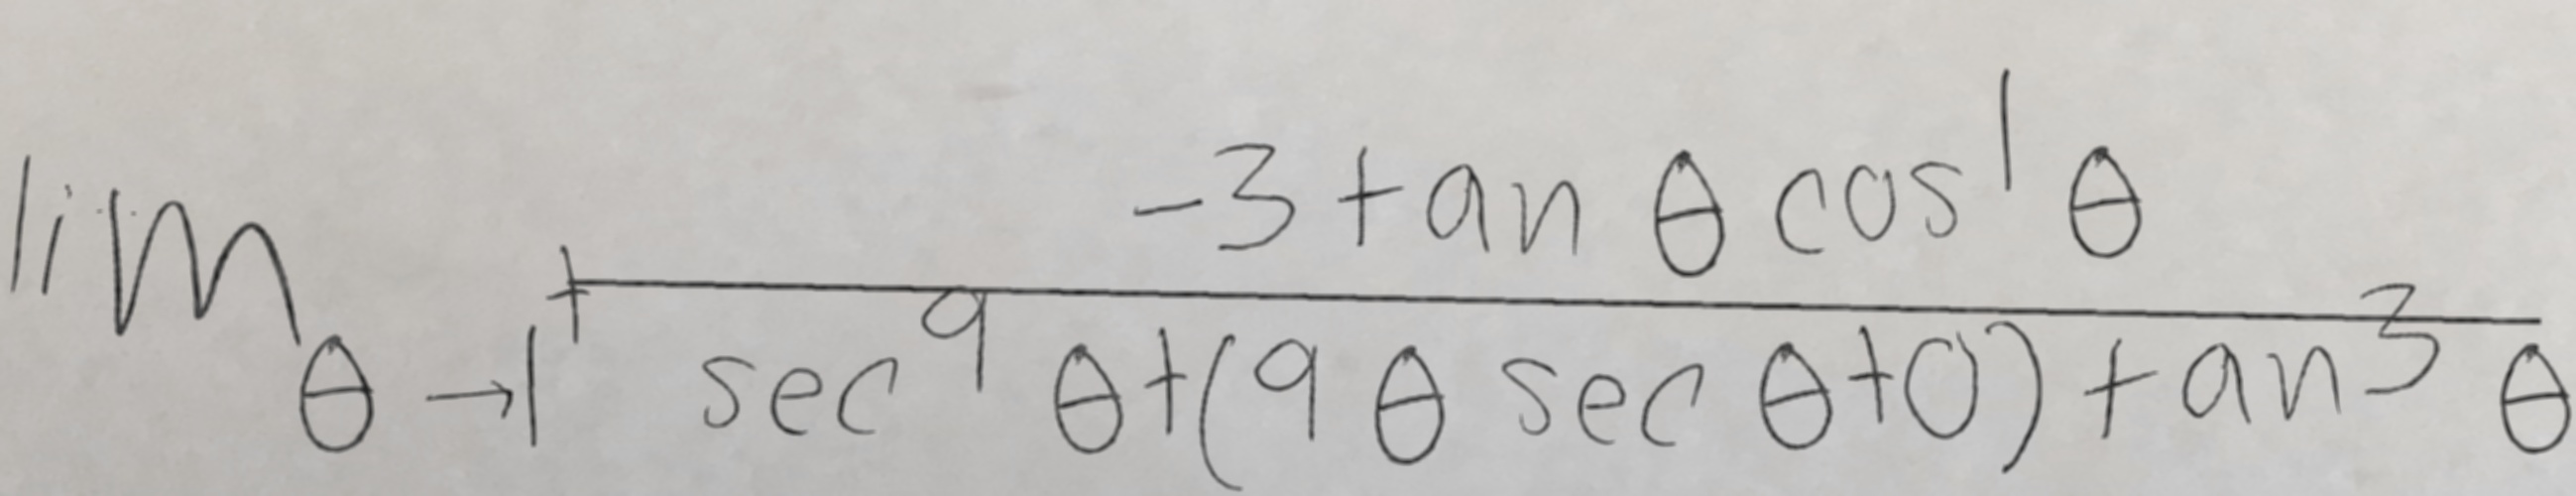 \lim_{\theta \to 1^+} \frac{-3 \tan \theta \cos^1 \theta}{\sec^9 \theta + (9 \theta \sec \theta + 0) \tan^3 \theta}